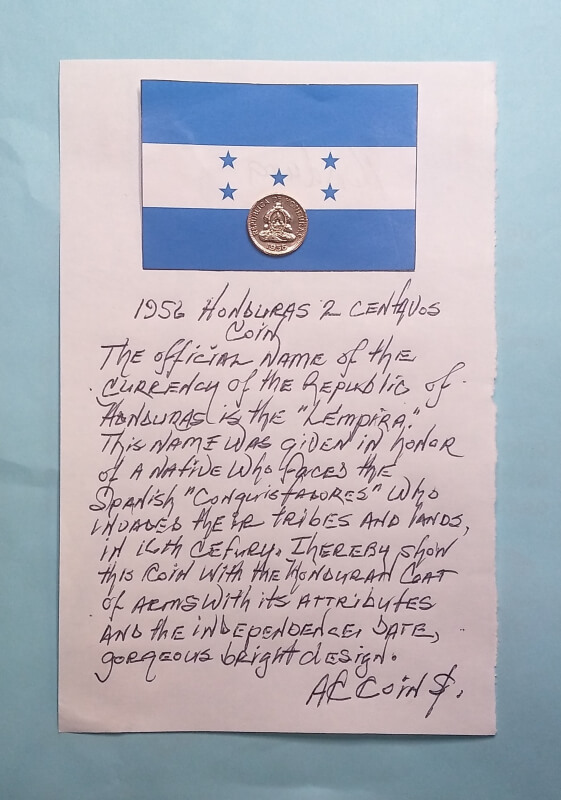 REPUBLICA DE HONDURAS
1956
1956 HONDURAS 2 CENTAVOS
COIN
THE OFFICIAL NAME OF THE
CURRENCY OF THE REPUBLIC OF
HONDURAS IS THE "LEMPIRA."
THIS NAME WAS GIVEN IN HONOR
OF A NATIVE WHO FACED THE
SPANISH "CONQUISTADORES" WHO
INVADED THEIR TRIBES AND LANDS,
IN 16th CEFURY. I HEREBY SHOW
THIS COIN WITH THE HONDURAN COAT
OF ARMS WITH ITS ATTRIBUTES
AND THE INDEPENDENCE, DATE,
GORGEOUS BRIGHT DESIGN.
COIN $.